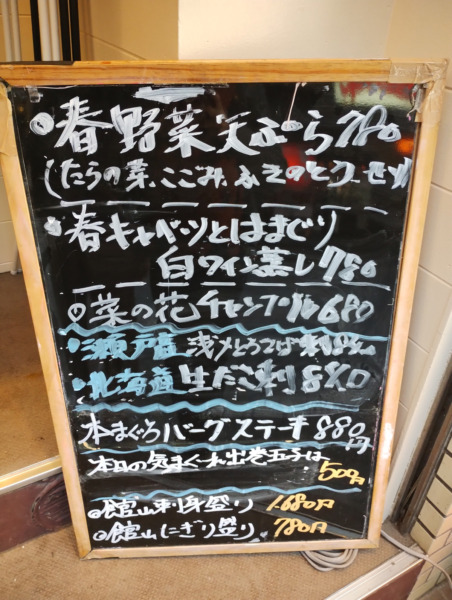 春野菜天ぷら780
(たらの菜、こごみ、ふきのとう、せり
春キャベツとはまぐり
白ワイン蒸し780
菜の花チャンプル680
瀬戸産
北海道 生だこ刺880
本まぐろハーグステーキ880円
本日の気まぐれ出巻玉子は
500円
館山刺身盛り 1.680円
館山にぎり盛り 780円